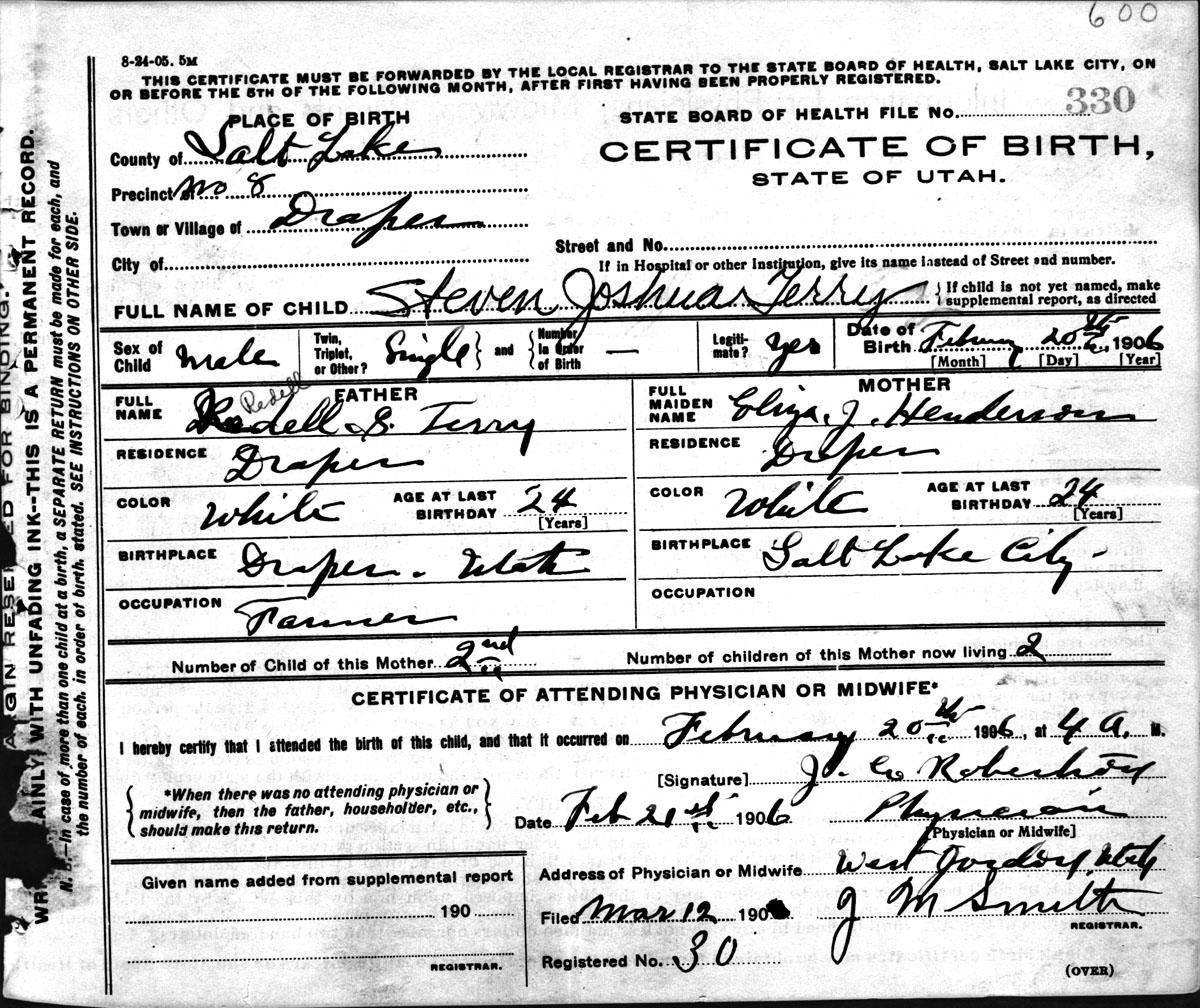 600
8-24-05. 5M
THIS CERTIFICATE MUST BE FORWARDED BY THE LOCAL REGISTRAR TO THE STATE BOARD OF HEALTH, SALT LAKE CITY, ON
OR BEFORE THE 5TH OF THE FOLLOWING MONTH, AFTER FIRST HAVING BEEN PROPERLY REGISTERED.
PLACE OF BIRTH
STATE BOARD OF HEALTH FILE No. 330
County of Salt Lake
CERTIFICATE OF BIRTH,
STATE OF UTAH.
Precinct of No 8
Town or Village of Draper
Street and No.
City of
If in Hospital or other Institution, give its name instead of Street and number.
FULL NAME OF CHILD Steven Joshua Terry {If child is not yet named, make supplemental report, as directed
Sex of Child Male Twin, Triplet, or Other? Single } and { Number in Order of Birth — Legiti-mate? Yes Date of Birth February 20th 1906
[Month] [Day] [Year]
FATHER
MOTHER
FULL NAME Redell S. Terry
Redell
FULL MAIDEN NAME Eliza. J. Henderson
RESIDENCE Draper
RESIDENCE Draper
COLOR White AGE AT LAST BIRTHDAY 24 [Years]
COLOR White AGE AT LAST BIRTHDAY 24 [Years]
BIRTHPLACE Draper - Utah
BIRTHPLACE Salt Lake City -
OCCUPATION Farmer
OCCUPATION
Number of Child of this Mother 2nd Number of children of this Mother now living 2
CERTIFICATE OF ATTENDING PHYSICIAN OR MIDWIFE*
I hereby certify that I attended the birth of this child, and that it occurred on February 20th 1906, at 4 A. M.
[Signature] J. Robertson
{ *When there was no attending physician or midwife, then the father, householder, etc., should make this return. }
Date Feb 21st 1906 Physician
[Physician or Midwife]
Address of Physician or Midwife West Jordan, Utah
Given name added from supplemental report
190
REGISTRAR.
Filed Mar 12 190 J M Smith
REGISTRAR.
Registered No. 30
(OVER)
MARGIN RESERVED FOR BINDING.
WRITE PLAINLY WITH UNFADING INK--THIS IS A PERMANENT RECORD.
N. B.—In case of more than one child at a birth, a SEPARATE RETURN must be made for each, and
the number of each, in order of birth, stated. SEE INSTRUCTIONS ON OTHER SIDE.